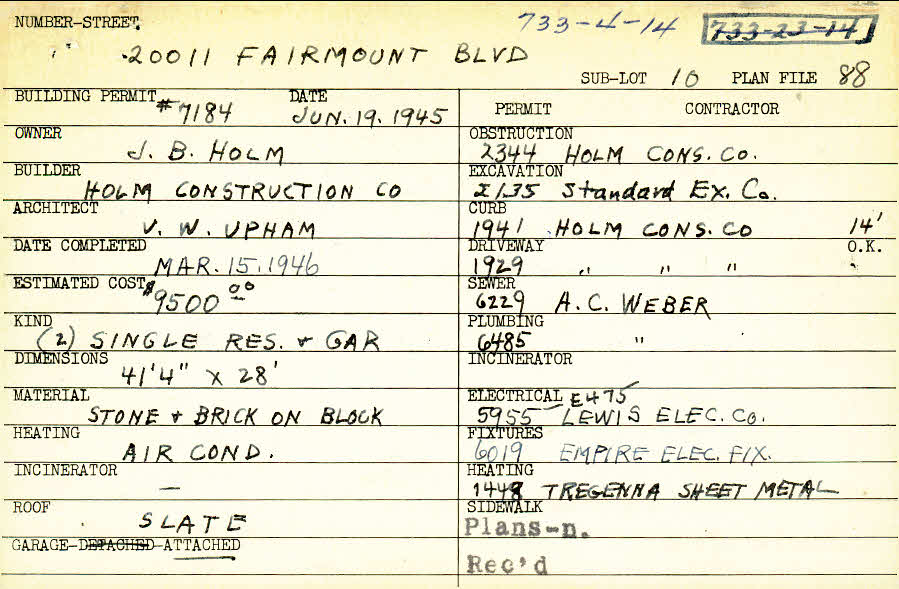 NUMBER-STREET 733-4-14 733-23-14
20011 FAIRMOUNT BLVD
SUB-LOT 10 PLAN FILE 88
BUILDING PERMIT #7184 DATE JUN. 19. 1945
PERMIT CONTRACTOR
OWNER J. B. HOLM
OBSTRUCTION 2344 HOLM CONS. CO.
BUILDER HOLM CONSTRUCTION CO
EXCAVATION 2135 Standard Ex. Co.
ARCHITECT V. W. UPHAM
CURB 1941 HOLM CONS. CO 14'
DATE COMPLETED MAR. 15. 1946
DRIVEWAY 1929 " " " O.K.
ESTIMATED COST $9500 00
SEWER 6229 A.C. WEBER
KIND (2) SINGLE RES. & GAR
PLUMBING 6485 "
DIMENSIONS 41'4" X 28'
INCINERATOR
MATERIAL STONE & BRICK ON BLOCK
ELECTRICAL E475 5955 LEWIS ELEC. CO.
HEATING AIR COND.
FIXTURES 6019 EMPIRE ELEC. FIX.
INCINERATOR —
HEATING 1448 TREGENNA SHEET METAL
ROOF SLATE
SIDEWALK
Plans-n.
GARAGE-DETACHED-ATTACHED
Rec'd